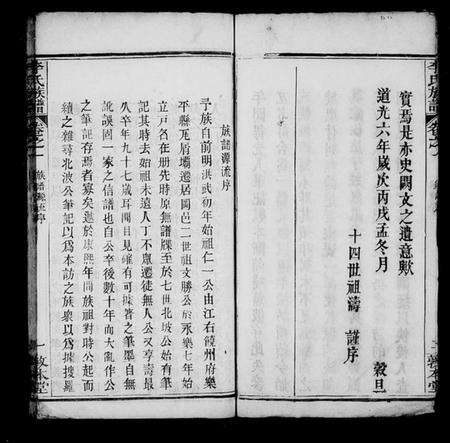 李氏族譜
卷之一
實焉是亦史闕文之遺意歟
道光六年歲次丙戌孟冬月 穀旦
十四世祖濤 謹序
敦本堂
族譜源流序
予族自前明洪武初年始祖仁一公由江右饒州府樂
平縣瓦屑壩遷居西邑二世祖文勝公於永樂七年始
立戶名在册先時原無譜牒至於七世北坡公始有筆
記其時去始祖未遠人丁不庶遷徙無人公又享壽最
久卒年九十七歲耳聞目見確有可據著之筆墨自無
譌誤固一家之信譜也自公卒後數十年而大亂作公
之筆記存焉者寡矣逮於康熙年間族祖對時公起而
續之雜尋北波公筆記以爲本訪之族衆以爲據搜羅
李氏族譜
卷之一
族譜源流序
一
敦本堂